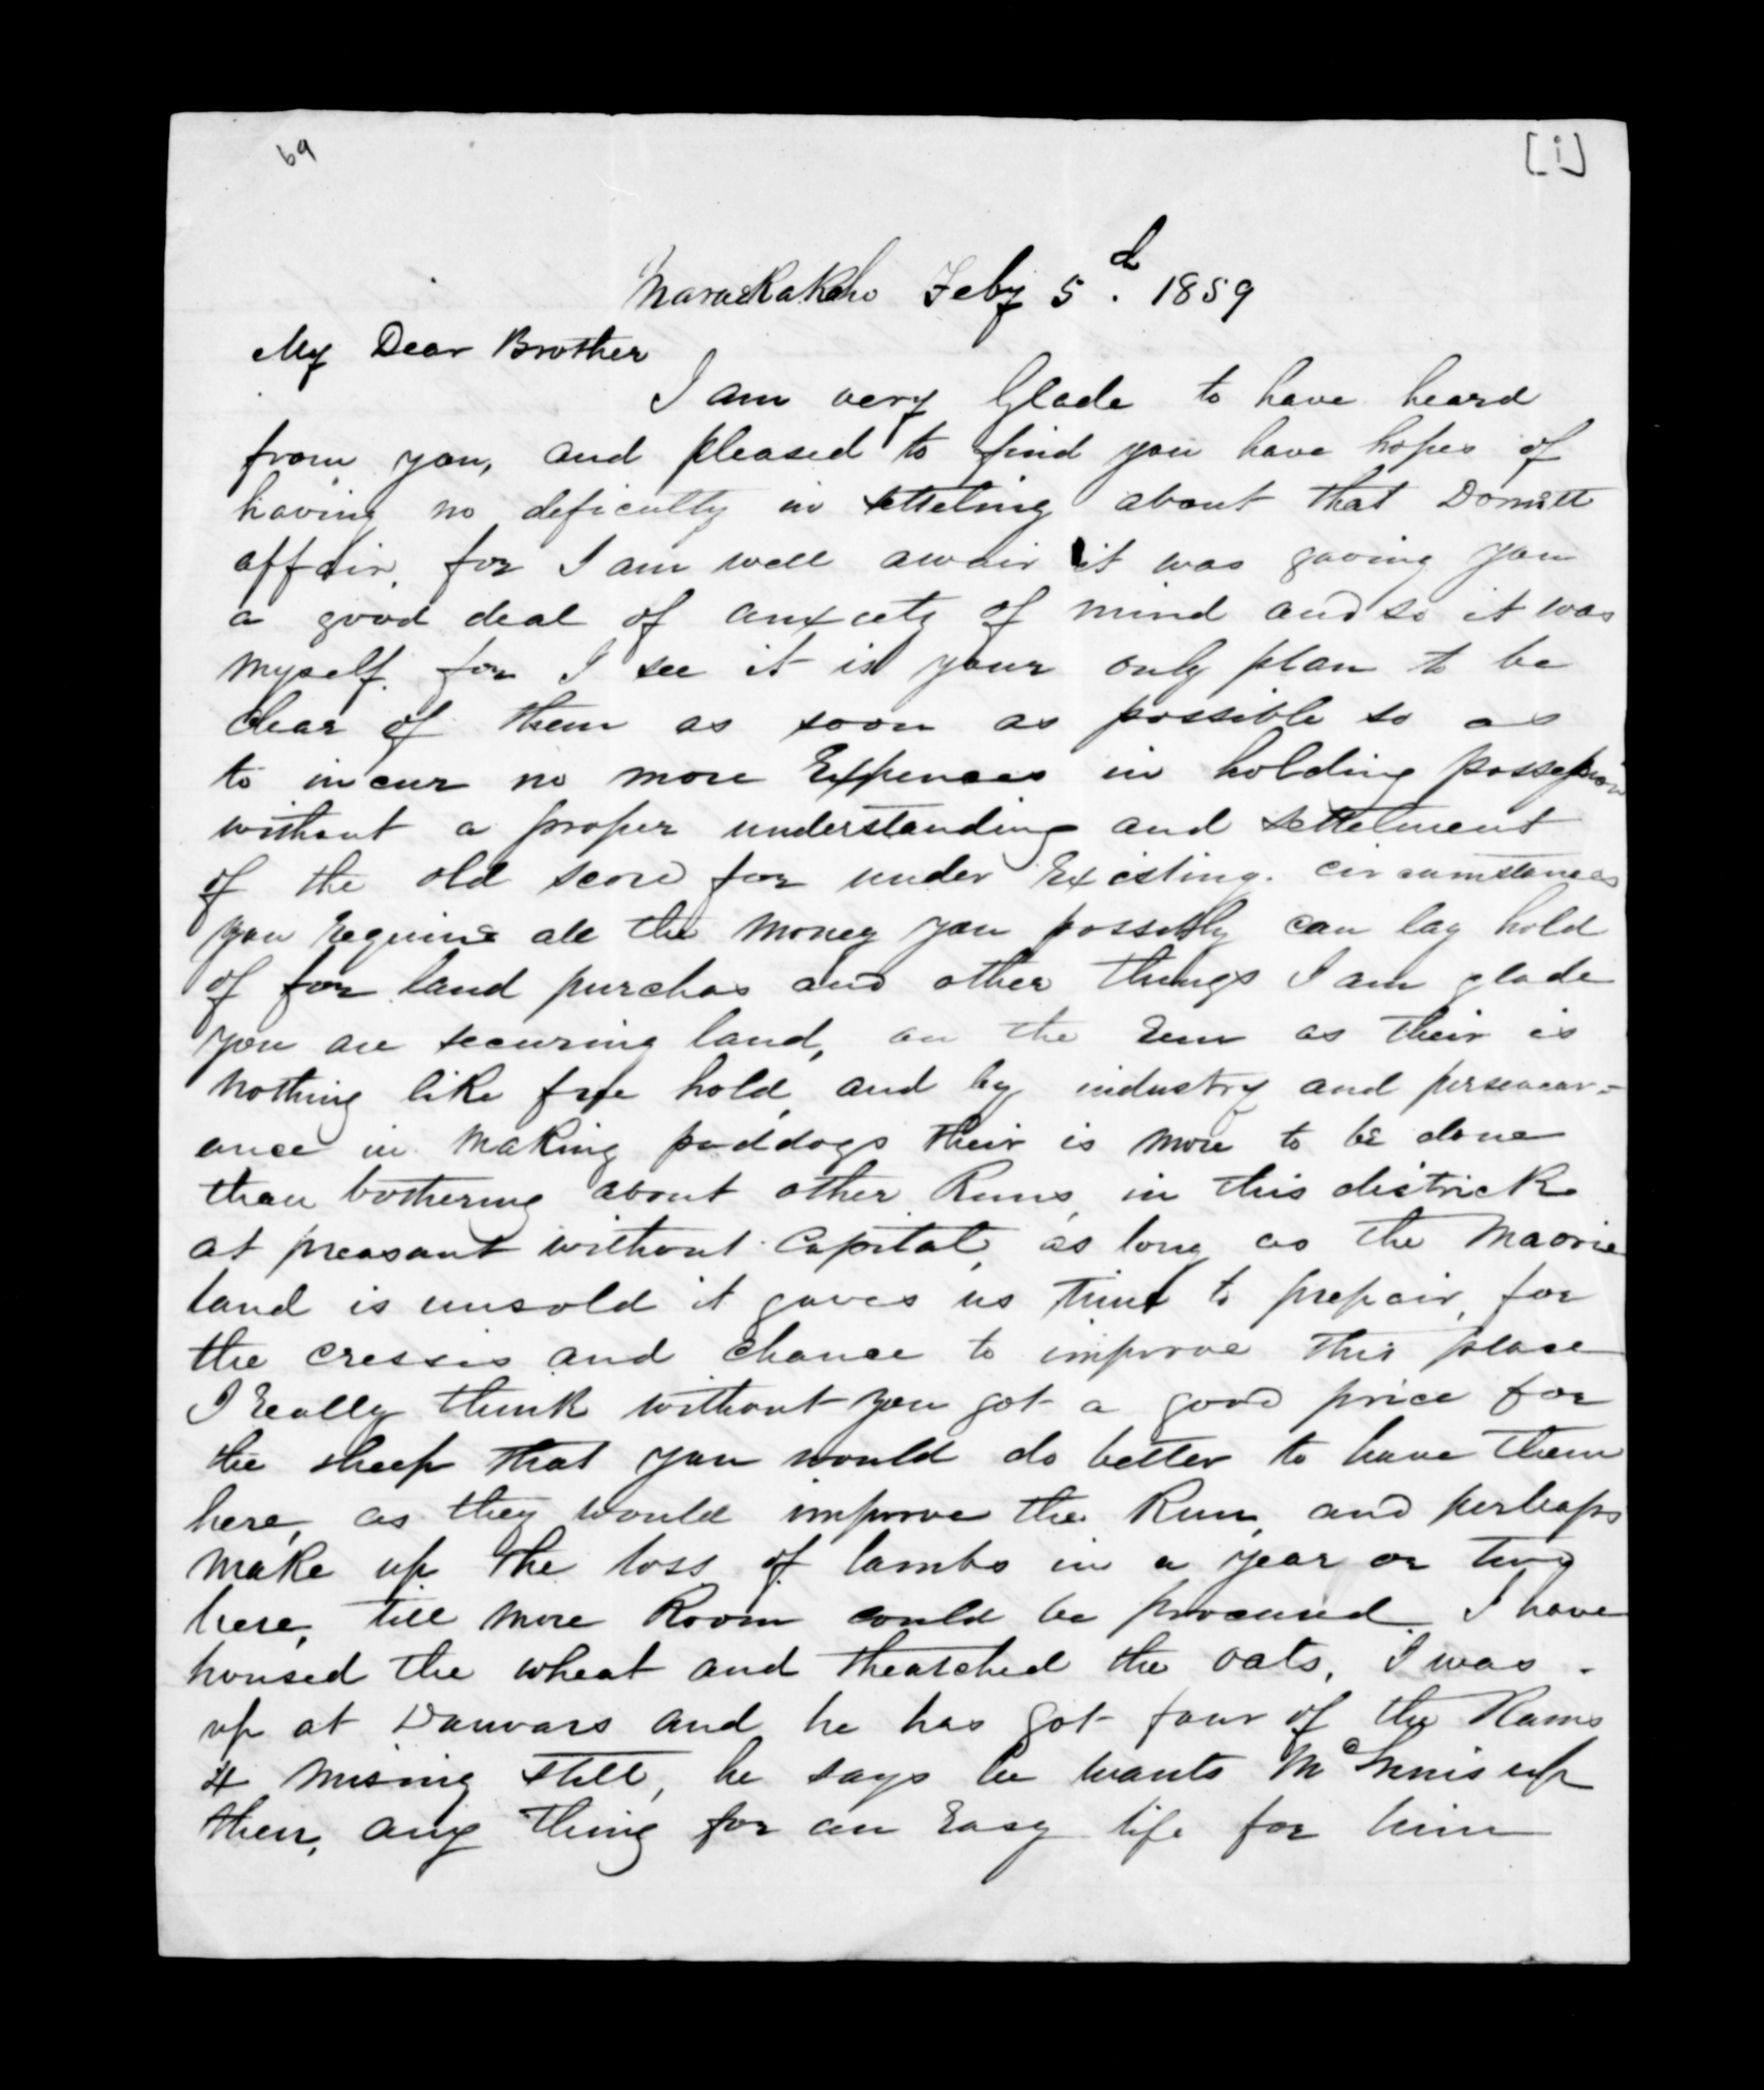 69
[i]
Maraekakaho Feby 5d. 1859
My Dear Brother
I am very Glade to have heard
from you, and pleased to find you have hopes of
having no deficulty in setteling about that Domitt
affair, for I am well awair it was gaving you
a good deal of anxcety of mind and so it was
myself. for I see it is your only plan to be
clear of them as soon as possible so as
to incur no more Expences in holding possession
without a proper understanding and settelment
of the old score for under Existing. circumstances
you Require all the money you possibly can lay hold
of for land purchas and other things I am glade
you are securing land, on the Run as their is
nothing like free hold, and by industry and perseaver=
ance in making paddogs their is more to be done
than bothering about other Runs, in this districk
at preasant without Capital, as long as the Maorie
land is unsold it gaves us time to prepair, for
the cressis and chance to improve this place
I Really think without you got a good price for
the sheep that you would do better to have them
here, as they would improve the Run, and perhaps
make up the loss of lambs in a year or two
here, till more Room could be procured I have
housed the wheat and theatched the oats, I was
up at Danvars and he has got four of the Rams
4 missing still, he says he wants McInnis up
their, any thing for an Easy life for him